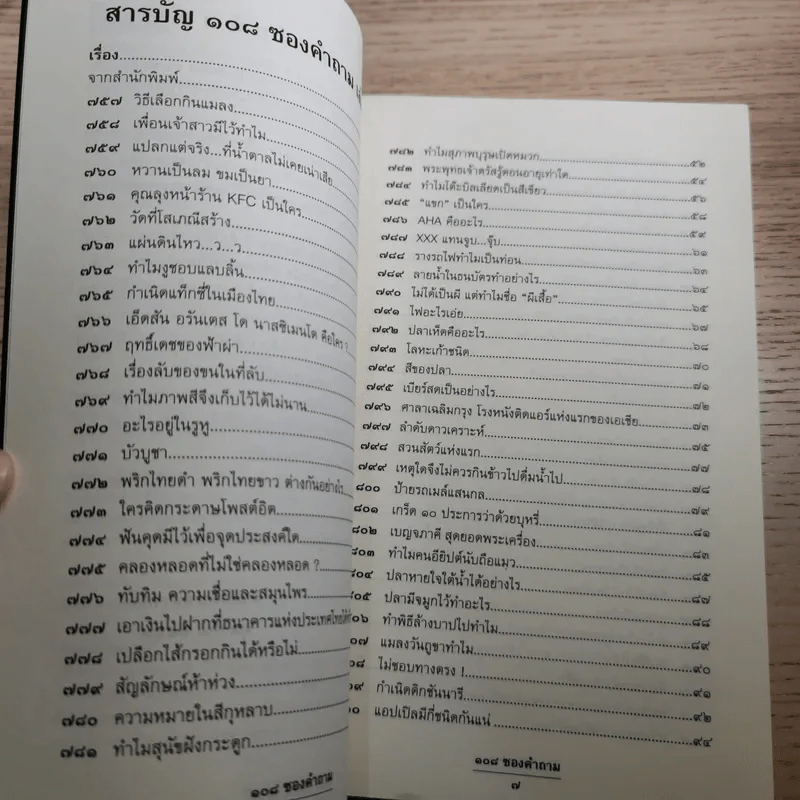 สารบัญ ๑๐๘ ซองคำถาม
เรื่อง
จากสำนักพิมพ์
๗๕๗ วิธีเลือกกินแมลง
๗๕๘ เพื่อนเจ้าสาวมีไว้ทำไม
๗๕๙ แปลกแต่จริง...ที่น้ำตาลไม่เคยเน่าเสีย
๗๖๐ หวานเป็นลม ขมเป็นยา
๗๖๑ คุณลุงหน้าร้าน KFC เป็นใคร
๗๖๒ วัดที่โสเภณีสร้าง
๗๖๓ แผ่นดินไหว...ว...ว
๗๖๔ ทำไมงูชอบแลบลิ้น
๗๖๕ กำเนิดแท็กซี่ในเมืองไทย
๗๖๖ เอ็ดสัน อรันเตส โด นาสซิเมนโต คือใคร ?
๗๖๗ ฤทธิ์เดชของฟ้าผ่า
๗๖๘ เรื่องลับของขนในที่ลับ
๗๖๙ ทำไมภาพสีจึงเก็บไว้ได้ไม่นาน
๗๗๐ อะไรอยู่ในรูหู
๗๗๑ บัวบูชา
๗๗๒ พริกไทยดำ พริกไทยขาว ต่างกันอย่างไร
๗๗๓ ใครคิดกระดาษโพสต์อิต
๗๗๔ ฟันคุดมีไว้เพื่อจุดประสงค์ใด
๗๗๕ คลองหลอดที่ไม่ใช่คลองหลอด ?
๗๗๖ ทับทิม ความเชื่อและสมุนไพร
๗๗๗ เอาเงินไปฝากที่ธนาคารแห่งประเทศไทยได้
๗๗๘ เปลือกไส้กรอกกินได้หรือไม่
๗๗๙ สัญลักษณ์ห้าห่วง
๗๘๐ ความหมายในสีกุหลาบ
๗๘๑ ทำไมสุนัขฝังกระดูก
๑๐๘ ซองคำถาม
๗๘๒ ทำไมสุภาพบุรุษเปิดหมวก ๕๒
๗๘๓ พระพุทธเจ้าตรัสรู้ตอนอายุเท่าใด ๕๔
๗๘๔ ทำไมโต๊ะบิลเลียดเป็นสีเขียว ๕๖
๗๘๕ "แขก" เป็นใคร ๕๘
๗๘๖ AHA คืออะไร ๕๙
๗๘๗ XXX แทนจูบ...จุ๊บ ๖๑
๗๘๘ รางรถไฟทำไมเป็นท่อน ๖๓
๗๘๙ ลายน้ำในธนบัตรทำอย่างไร ๖๔
๗๙๐ ไม่ได้เป็นผี แต่ทำไมชื่อ "ผีเสื้อ" ๖๕
๗๙๑ ไฟอะไรเอ่ย ๖๗
๗๙๒ ปลาเห็ดคืออะไร ๖๘
๗๙๓ โลหะเก้าชนิด ๗๐
๗๙๔ สีของปลา ๗๑
๗๙๕ เบียร์สดเป็นอย่างไร ๗๒
๗๙๖ ศาลาเฉลิมกรุง โรงหนังติดแอร์แห่งแรกของเอเชีย ๗๓
๗๙๗ ลำดับดาวเคราะห์ ๗๕
๗๙๘ สวนสัตว์แห่งแรก ๗๗
๗๙๙ เหตุใดจึงไม่ควรกินข้าวไปดื่มน้ำไป ๗๘
๘๐๐ ป้ายรถเมล์แสนกล ๗๙
๘๐๑ เกร็ด ๑๐ ประการว่าด้วยบุหรี่ ๘๑
๘๐๒ เบญจภาคี สุดยอดพระเครื่อง ๘๓
๘๐๓ ทำไมคนอียิปต์นับถือแมว ๘๕
๘๐๔ ปลาหายใจใต้น้ำได้อย่างไร ๘๗
๘๐๕ ปลามีจมูกไว้ทำอะไร ๘๘
๐๖ ทำพิธีล้างบาปไปทำไม ๘๙
๐๗ แมลงวันถูขาทำไม ๙๐
๐๘ ไม่ชอบทางตรง ! ๙๑
๐๙ กำเนิดดิกชันนารี ๙๒
๑๐ แอปเปิลมีกี่ชนิดกันแน่ ๙๔
๑๐๘ ซองคำถาม
๗